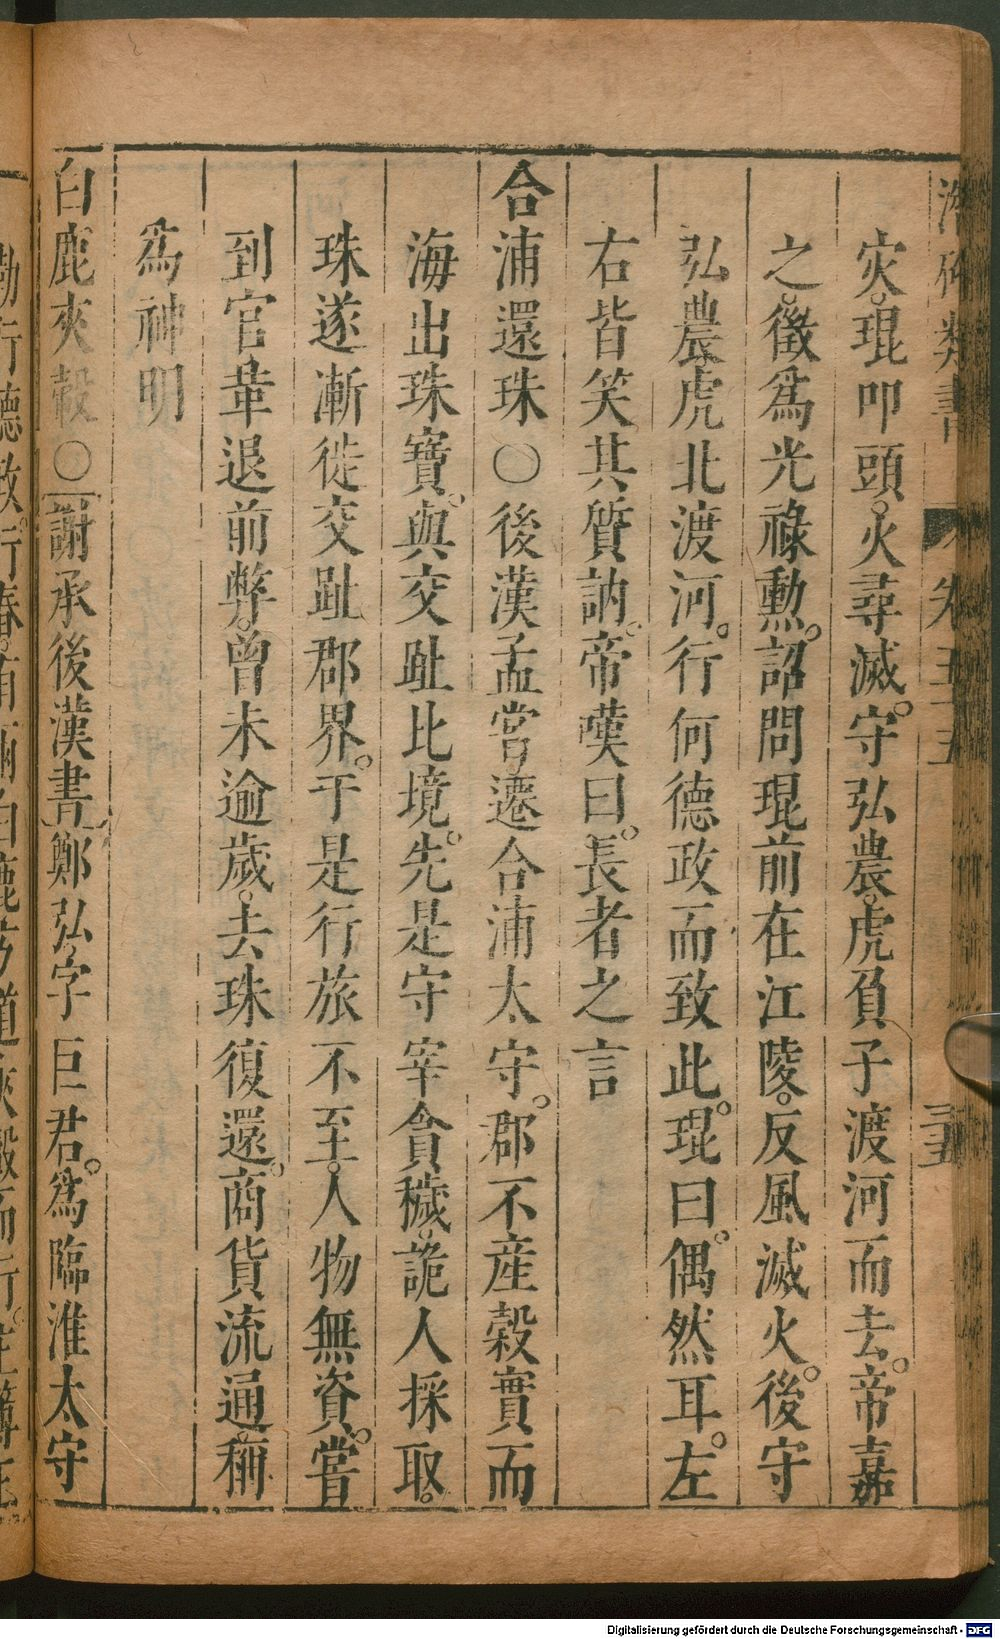 類書 卷五十五 三十五
灾。琨叩頭。火尋滅。守弘農。虎負子渡河而去。帝嘉
之。徵爲光祿勳。詔問琨前在江陵。反風滅火。後守
弘農虎北渡河。行何德政而致此。琨曰。偶然耳。左
右皆笑其質訥。帝嘆曰。長者之言
合浦還珠〇後漢孟嘗。遷合浦太守。郡不産穀實而
海出珠寶。與交趾比境。先是守宰貪穢。詭人採取。
珠遂漸徙交趾郡界。于是行旅不至。人物無資。嘗
到官革退前弊。曾未逾歲。去珠復還。商貨流通。稱
爲神明
白鹿夾轂〇謝承後漢書鄭弘字巨君。爲臨淮太守
行德敇。行春。有兩白鹿方道夾轂而行。
Digitalisierung gefördert durch die Deutsche Forschungsgemeinschaft - DFG